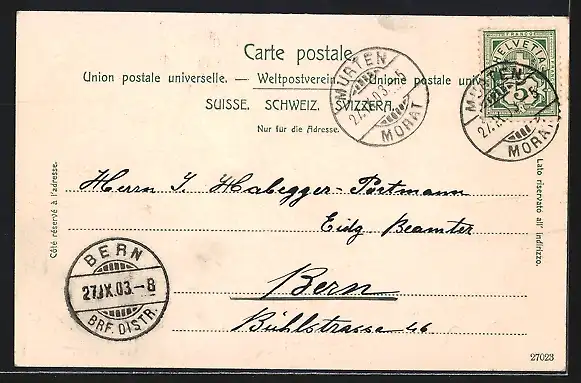 Carte postale.
Union postale universelle. — Weltpostverein. Unione postale uni
SUISSE. SCHWEIZ. SVIZZERA.
Nur für die Adresse.
MURTEN
27.IX.03.
MORAT
HELVETIA
5
MURTEN
27.IX.
MORAT
Côté réservé à l'adresse.
Lato riservato all' indirizzo.
Herrn J. Habegger-Portmann
Eidg Beamter
Bern
Bühlstrasse 46
BERN
27.IX.03.-8
BRF. DISTR.
27023